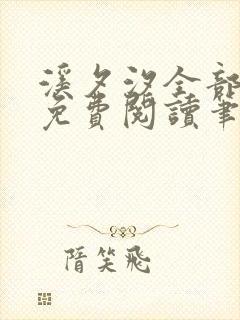 溪夕汐全部
免費閱讀筆
隋笑飛